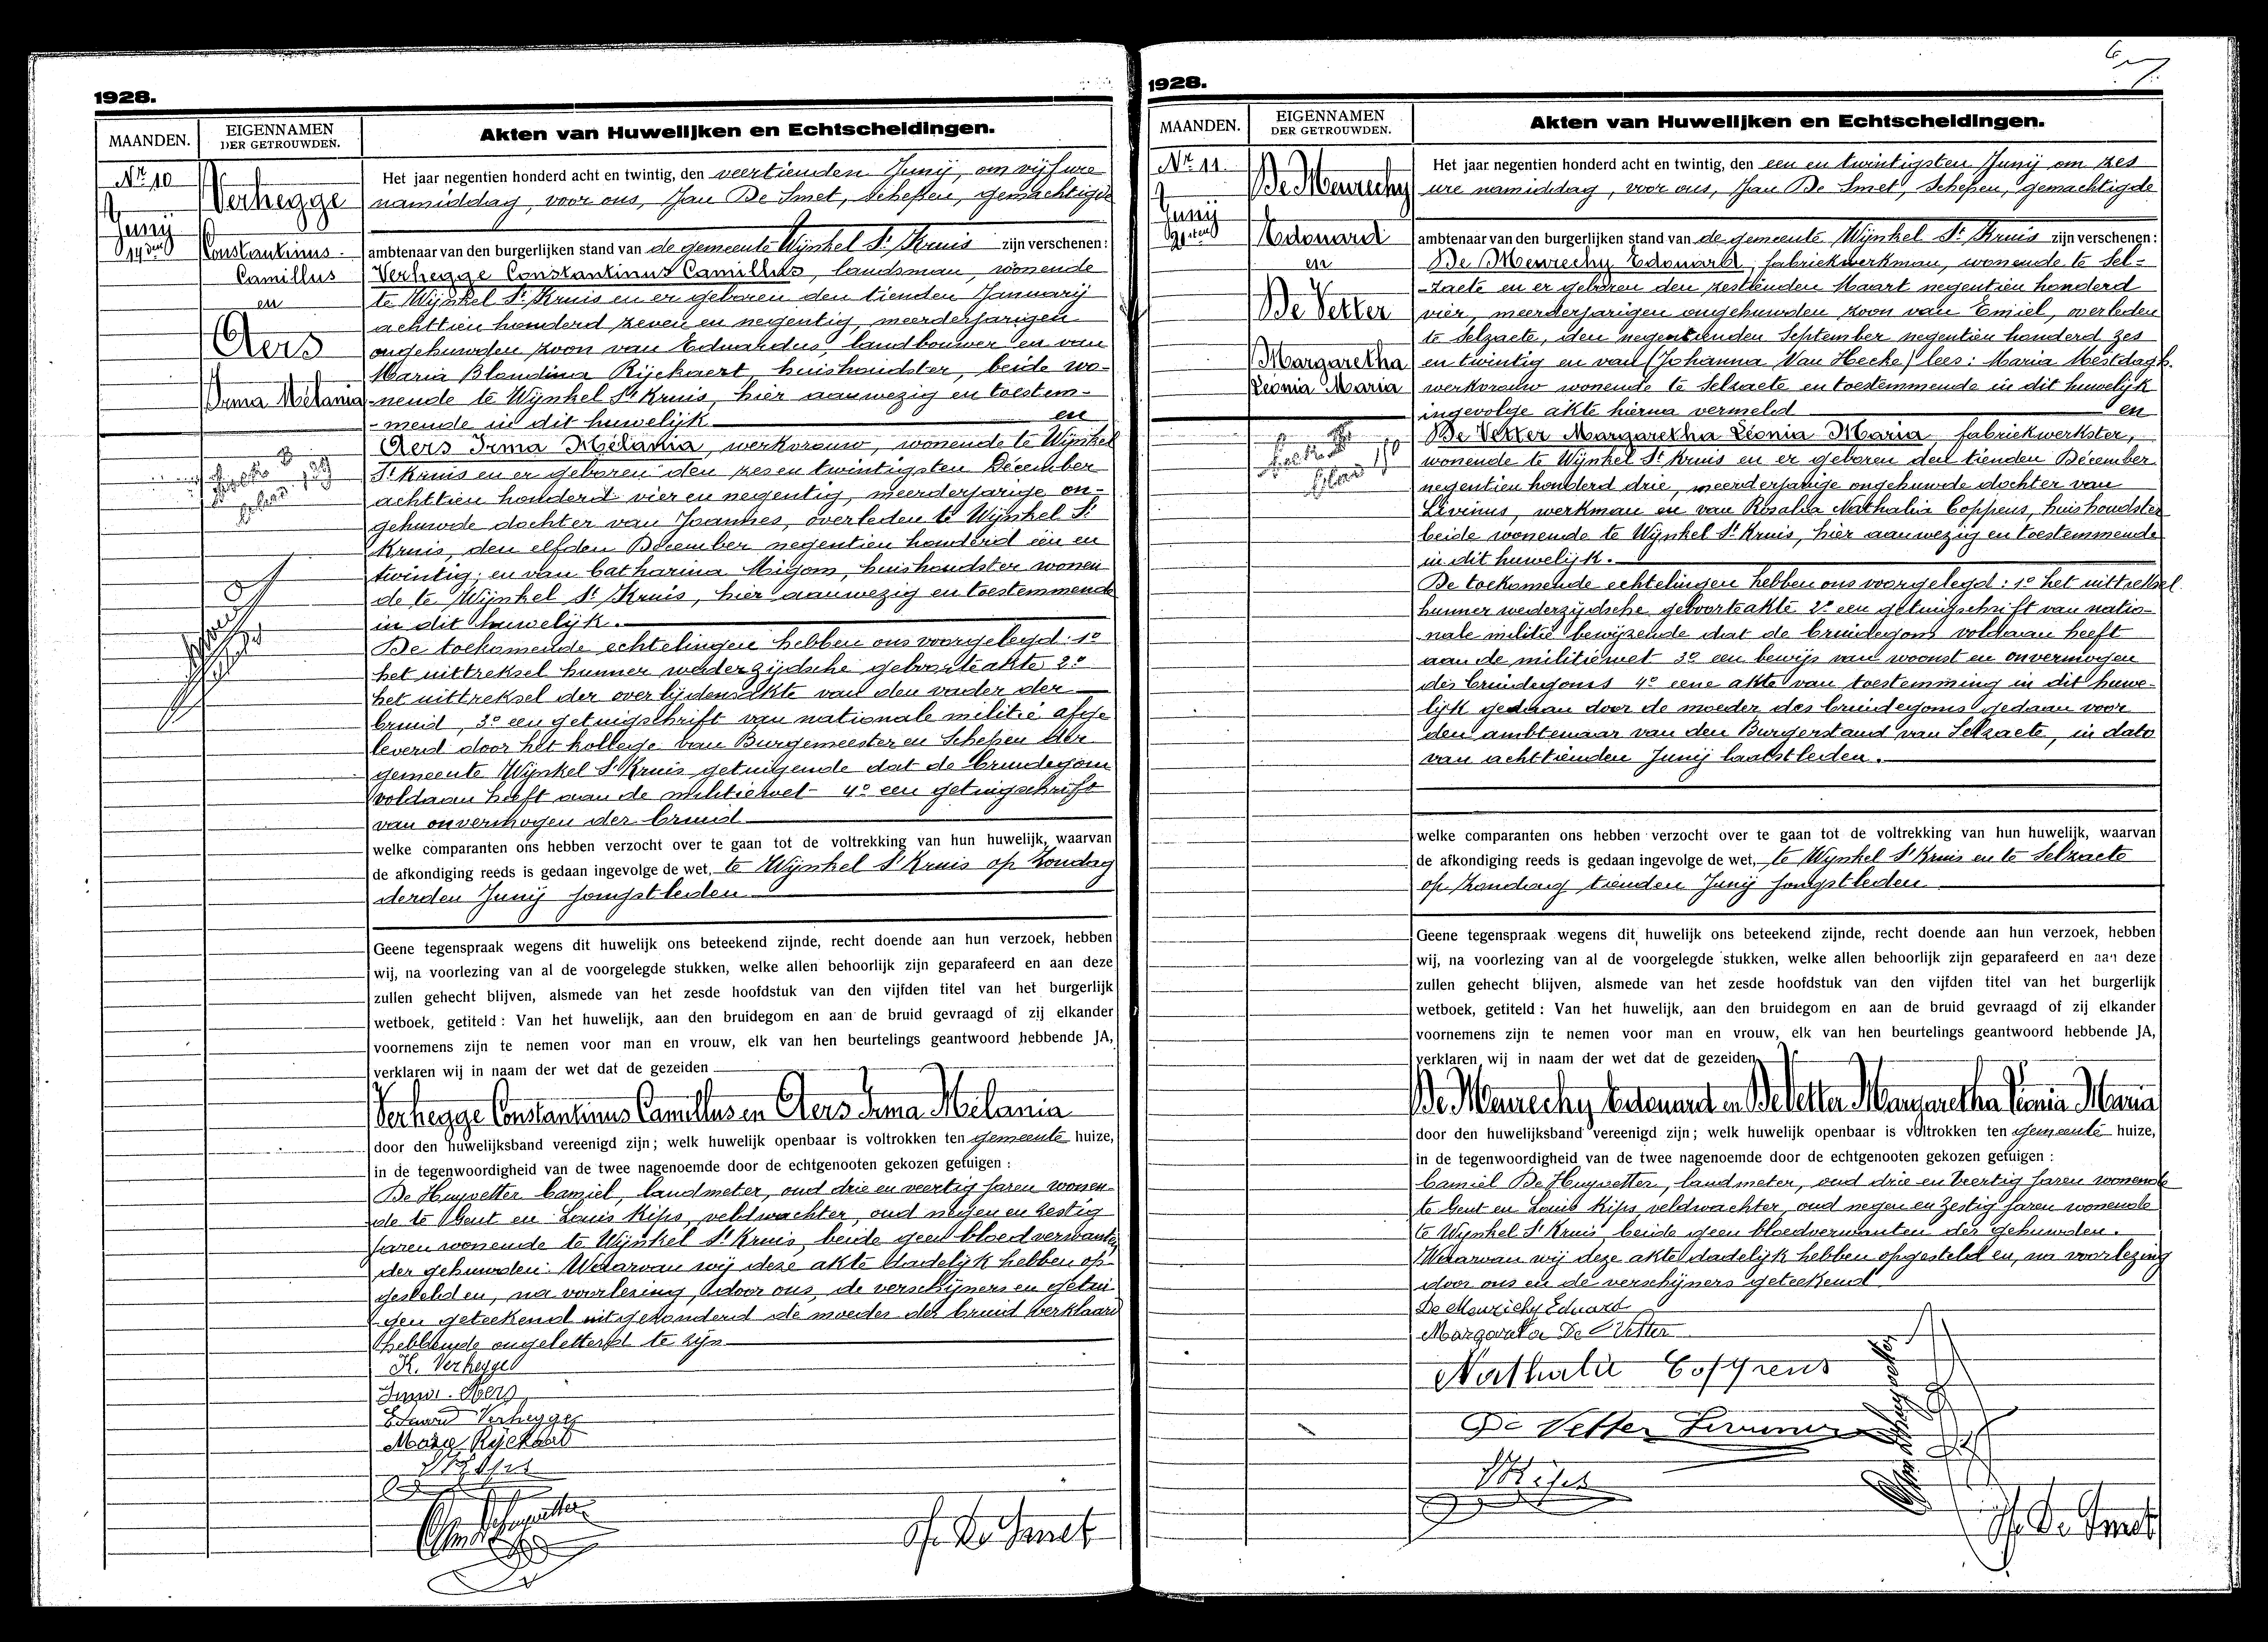 1928.
MAANDEN.
EIGENNAMEN
DER GETROUWDEN.
Akten van Huwelijken en Echtscheidingen.
Nr 10
Junij
14den
Verhegge
Constantinus
Camillus
en
Aers
Irma Mélania
Het jaar negentien honderd acht en twintig, den veertienden Junij, om vijf ure
namiddag, voor ons, Jan De Smet, Schepen, gemachtigde
ambtenaar van den burgerlijken stand van de gemeente Wijnkel St Kruis zijn verschenen:
Verhegge Constantinus Camillus, landsman, wonende
te Wijnkel St Kruis en er geboren den tienden January
achttien honderd zeven en negentig, meerderjarigen
ongehuwden zoon van Eduardus, landbouwer en van
Maria Blondina Rijckaert, huishoudster, beide wo-
-nende te Wijnkel St Kruis, hier aanwezig en toestem-
-mende in dit huwelijk en
Aers Irma Mélania, werkvrouw, wonende te Wijnkel
St Kruis en er geboren den zes en twintigsten December
achttien honderd vier en negentig, meerderjarige on-
gehuwde dochter van Joannes, overleden te Wijnkel St
Kruis, den elfden December negentien honderd een en
twintig; en van Catharina Migom, huishoudster wonen
de te Wijnkel St Kruis, hier aanwezig en toestemmende
in dit huwelijk.
De toekomende echtelingen hebben ons voorgelegd: 1o
het uittreksel hunner wederzijdsche geboorteakte 2o
het uittreksel der overlijdensakte van den vader der
bruid, 3o een getuigschrift van nationale militie afge
leverd door het kollege van Burgemeester en Schepen der
gemeente Wijnkel St Kruis getuigende dat de bruidegom
voldaan heeft aan de militiewet 4o een getuigschrift
van onvermogen der bruid
welke comparanten ons hebben verzocht over te gaan tot de voltrekking van hun huwelijk, waarvan
de afkondiging reeds is gedaan ingevolge de wet, te Wijnkel St Kruis op Zondag
derden Junij jongstleden
Geene tegenspraak wegens dit huwelijk ons beteekend zijnde, recht doende aan hun verzoek, hebben
wij, na voorlezing van al de voorgelegde stukken, welke allen behoorlijk zijn geparafeerd en aan deze
zullen gehecht blijven, alsmede van het zesde hoofdstuk van den vijfden titel van het burgerlijk
wetboek, getiteld : Van het huwelijk, aan den bruidegom en aan de bruid gevraagd of zij elkander
voornemens zijn te nemen voor man en vrouw, elk van hen beurtelings geantwoord hebbende JA,
verklaren wij in naam der wet dat de gezeiden
Verhegge Constantinus Camillus en Aers Irma Melania
door den huwelijksband vereenigd zijn; welk huwelijk openbaar is voltrokken ten gemeente huize,
in de tegenwoordigheid van de twee nagenoemde door de echtgenooten gekozen getuigen :
De Huyvetter Camiel, landmeter, oud drie en veertig jaren wonen
de te Gent en Louis Kips, veldwachter, oud negen en zestig
jaren wonende te Wijnkel St Kruis, beide geen bloedverwanten
der gehuwden. Waarvan wij deze akte dadelijk hebben op
gesteld en, na voorlezing, door ons, de verschijners en getui
gen geteekend uitgezonderd de moeder der bruid verklaard
hebbende ongeletterd te zijn
K. Verhegge
Irma Aers
Eduard Verhegge
Marie Rijckaert
J. De Smet
1928.
MAANDEN.
EIGENNAMEN
DER GETROUWDEN.
Akten van Huwelijken en Echtscheidingen.
Nr 11.
Junij
21sten
De Meurechy
Edouard
en
De Vetter
Margaretha
Léonia Maria
Het jaar negentien honderd acht en twintig, den een en twintigsten Junij om zes
ure namiddag, voor ons, Jan De Smet, Schepen, gemachtigde
ambtenaar van den burgerlijken stand van de gemeente Wijnkel St Kruis zijn verschenen:
De Meurechy Edouard, fabriekwerkman, wonende te Sel-
-zaete en er geboren den zestienden Maart negentien honderd
vier, meerderjarigen ongehuwden zoon van Emiel, overleden
te Selzaete, den negentienden September negentien honderd zes
en twintig en van (Johanna Van Hecke) lees: Maria Mestdagh.
werkvrouw wonende te Selzaete en toestemmende in dit huwelijk
ingevolge akte hierna vermeld en
De Vetter Margaretha Léonia Maria, fabriekwerkster,
wonende te Wijnkel St Kruis en er geboren den tienden December
negentien honderd drie, meerderjarige ongehuwde dochter van
Livinus, werkman en van Rosalia Nathalia Coppens, huishoudster
beide wonende te Wijnkel St Kruis, hier aanwezig en toestemmende
in dit huwelijk.
De toekomende echtelingen hebben ons voorgelegd: 1o het uittreksel
hunner wederzijdsche geboorteakte 2o een getuigschrift van natio-
nale militie bewijzende dat de bruidegom voldaan heeft
aan de militiewet 3o een bewijs van woonst en onvermogen
des bruidegoms 4o eene akte van toestemming in dit huwe-
lijk gedaan door de moeder des bruidegoms gedaan voor
den ambtenaar van den Burgerstand van Selzaete, in dato
van achttienden Junij laatstleden.
welke comparanten ons hebben verzocht over te gaan tot de voltrekking van hun huwelijk, waarvan
de afkondiging reeds is gedaan ingevolge de wet, te Wynkel St Kruis en te Selzaete
op Zondag tienden Junij jongstleden
Geene tegenspraak wegens dit huwelijk ons beteekend zijnde, recht doende aan hun verzoek, hebben
wij, na voorlezing van al de voorgelegde stukken, welke allen behoorlijk zijn geparafeerd en aan deze
zullen gehecht blijven, alsmede van het zesde hoofdstuk van den vijfden titel van het burgerlijk
wetboek, getiteld : Van het huwelijk, aan den bruidegom en aan de bruid gevraagd of zij elkander
voornemens zijn te nemen voor man en vrouw, elk van hen beurtelings geantwoord hebbende JA,
verklaren wij in naam der wet dat de gezeiden
De Meurechy Edouard en De Vetter Margaretha Léonia Maria
door den huwelijksband vereenigd zijn; welk huwelijk openbaar is voltrokken ten gemeente huize,
in de tegenwoordigheid van de twee nagenoemde door de echtgenooten gekozen getuigen :
Camiel De Huyvetter, landmeter, oud drie en veertig jaren wonende
te Gent en Louis Kips, veldwachter, oud negen en zestig jaren wonende
te Wynkel St Kruis, beide geen bloedverwanten der gehuwden.
Waarvan wij deze akte dadelijk hebben opgesteld en, na voorlezing
door ons en de verschijners geteekend
De Meurichy Eduard
Margareta De Vetter
Nathalie Coppens
De Vetter Livinus
L Kips
J. De Smet